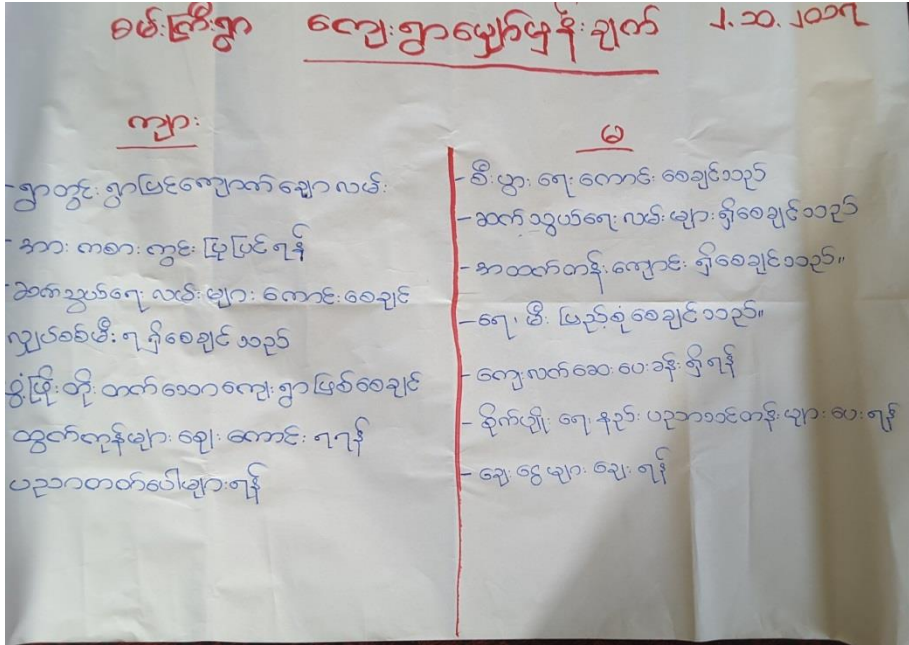 စမ်းကြီးရွာ ကျေးရွာမျှော်မှန်းချက် ၂.၁၀.၂၀၁၇
ကျား
-ရွာတွင်းရွာပြင်ကျောက်ချောလမ်း
-အားကစားကွင်းပြုပြင်ရန်
-ဆက်သွယ်ရေးလမ်းများကောင်းစေချင်
လျှပ်စစ်မီးရရှိစေချင်သည်
ဖွံ့ဖြိုးတိုးတက်သောကျေးရွာဖြစ်စေချင်
ထွက်ကုန်များဈေးကောင်းရရန်
ပညာတတ်ပေါများရန်
မ
-စီးပွားရေးကောင်းစေချင်သည်
-ဆက်သွယ်ရေးလမ်းများရှိစေချင်သည်
-အထက်တန်းကျောင်းရှိစေချင်သည်။
-ရေ၊မီးပြည့်စုံစေချင်သည်။
-ကျေးလက်ဆေးပေးခန်းရှိရန်
-စိုက်ပျိုးရေးနည်းပညာသင်တန်းများပေးရန်
-ချေးငွေများချေးရန်